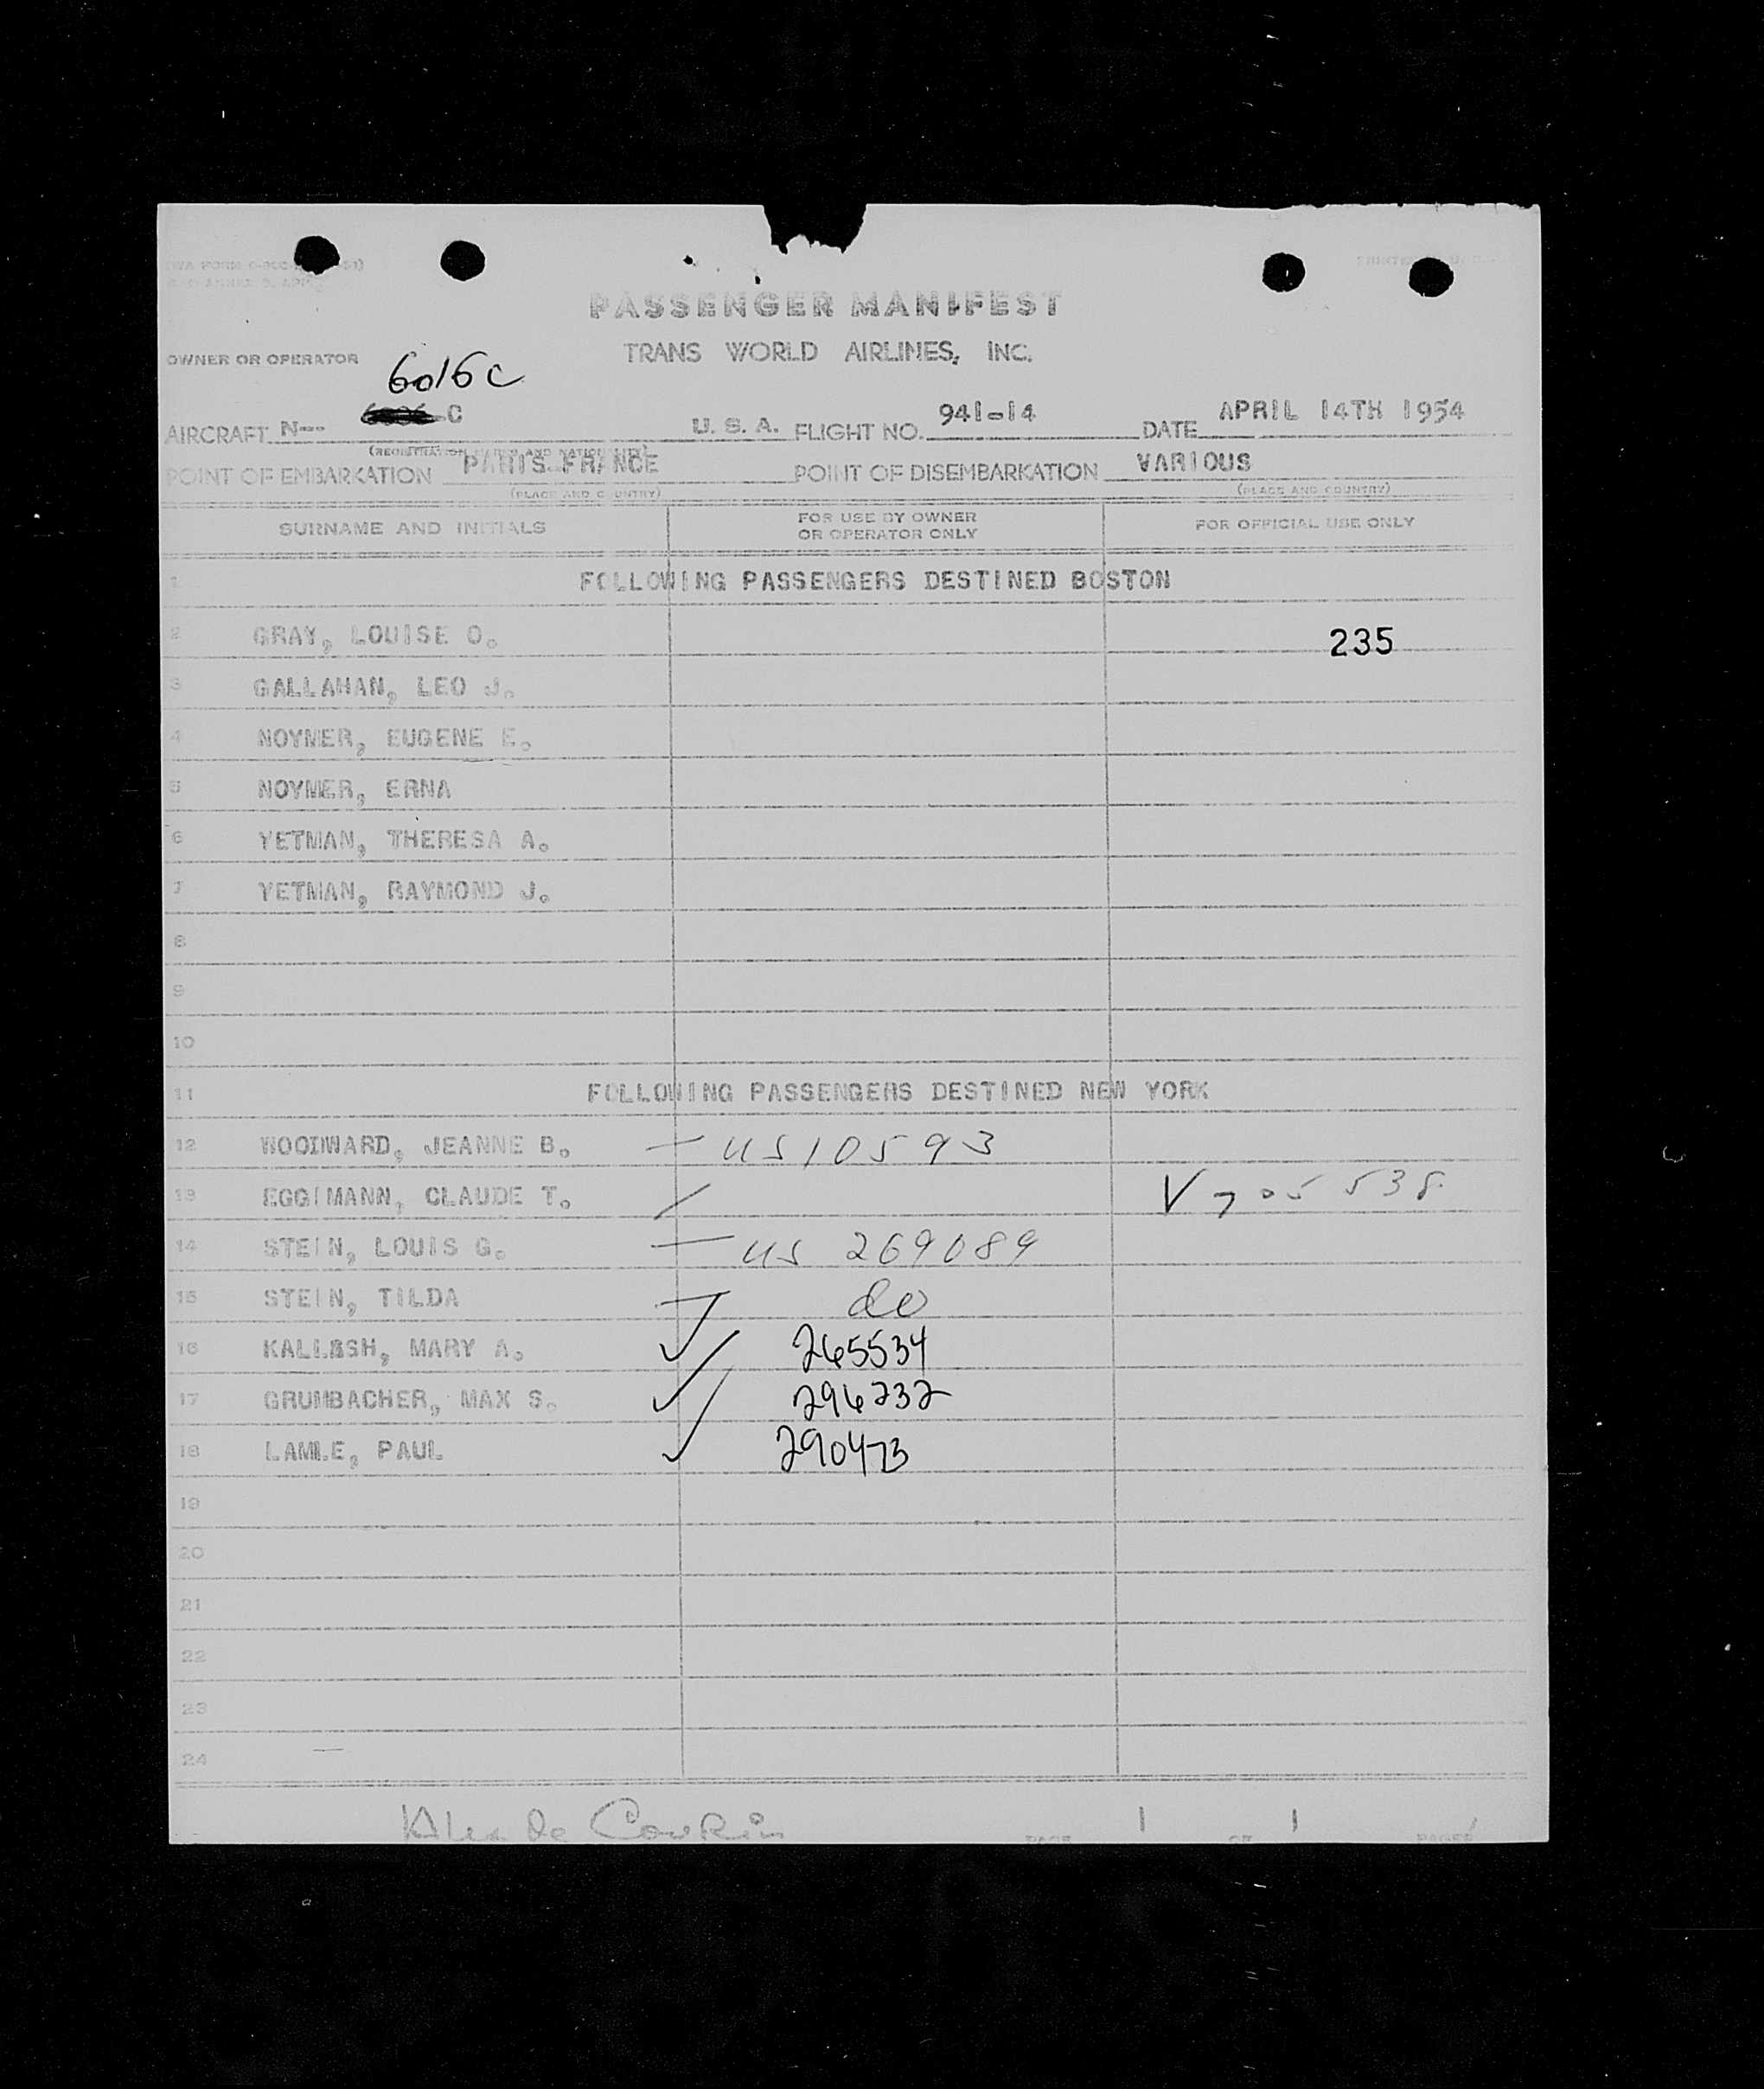 PASSENGER MANIFEST
OWNER OR OPERATOR TRANS WORLD AIRLINES, INC.
6016C
AIRCRAFT N-- C U. S. A. FLIGHT NO. 941-14 DATE APRIL 14TH 1954
POINT OF EMBARKATION PARIS FRANCE POINT OF DISEMBARKATION VARIOUS
(PLACE AND COUNTRY) (PLACE AND COUNTRY)
SURNAME AND INITIALS FOR USE BY OWNER OR OPERATOR ONLY FOR OFFICIAL USE ONLY
1 FOLLOWING PASSENGERS DESTINED BOSTON
2 GRAY, LOUISE O. 235
3 GALLAHAN, LEO J.
4 NOYMER, EUGENE E.
5 NOYMER, ERNA
6 YETMAN, THERESA A.
7 YETMAN, RAYMOND J.
8
9
10
11 FOLLOWING PASSENGERS DESTINED NEW YORK
12 WOODWARD, JEANNE B. — US 10593
13 EGGIMANN, CLAUDE T. V 705 538
14 STEIN, LOUIS G. — US 269089
15 STEIN, TILDA do
16 KALLASH, MARY A. ✓ 265534
17 GRUMBACHER, MAX S. ✓ 296232
18 LAMLE, PAUL ✓ 290473
19
20
21
22
23
24
PAGE 1 OF 1 PAGES